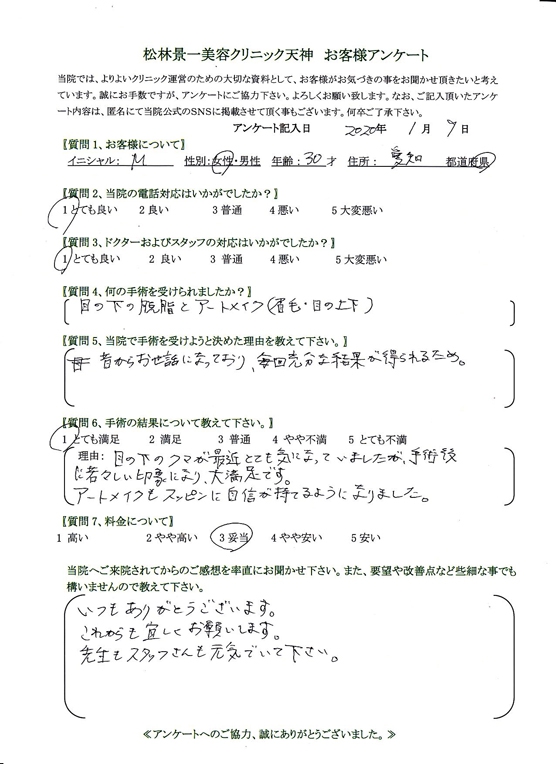 松林景一美容クリニック天神 お客様アンケート
当院では、よりよいクリニック運営のための大切な資料として、お客様がお気づきの事をお聞かせ頂きたいと考え
ています。誠にお手数ですが、アンケートにご協力下さい。よろしくお願い致します。なお、ご記入頂いたアンケ
ート内容は、匿名にて当院公式のSNSに掲載させて頂く事もございます。何卒ご了承下さい。
アンケート記入日 2020年 1月 9日
〖質問1、お客様について〗
イニシャル: M 性別:女性・男性 年齢:30才 住所: 愛知 都道府県
〖質問2、当院の電話対応はいかがでしたか?〗
1 とても良い 2 良い 3 普通 4 悪い 5 大変悪い
〖質問3、ドクターおよびスタッフの対応はいかがでしたか?〗
1 とても良い 2 良い 3 普通 4 悪い 5 大変悪い
〖質問4、何の手術を受けられましたか?〗
目の下の脱脂とアートメイク(眉毛・目の上下)
〖質問5、当院で手術を受けようと決めた理由を教えて下さい。〗
昔からお世話になっており、毎回充分な結果が得られるため。
〖質問6、手術の結果について教えて下さい。〗
1 とても満足 2 満足 3 普通 4 やや不満 5 とても不満
理由: 目の下のクマが最近とても気になっていましたが、手術後
に若々しい印象になり、大満足です。
アートメイクもスッピンに自信が持てるようになりました。
〖質問7、料金について〗
1 高い 2 やや高い 3 妥当 4 やや安い 5 安い
当院へご来院されてからのご感想を率直にお聞かせ下さい。また、要望や改善点など些細な事でも
構いませんので教えて下さい。
いつもありがとうございます。
これからも宜しくお願いします。
先生もスタッフさんも元気でいて下さい。
≪アンケートへのご協力、誠にありがとうございました。≫